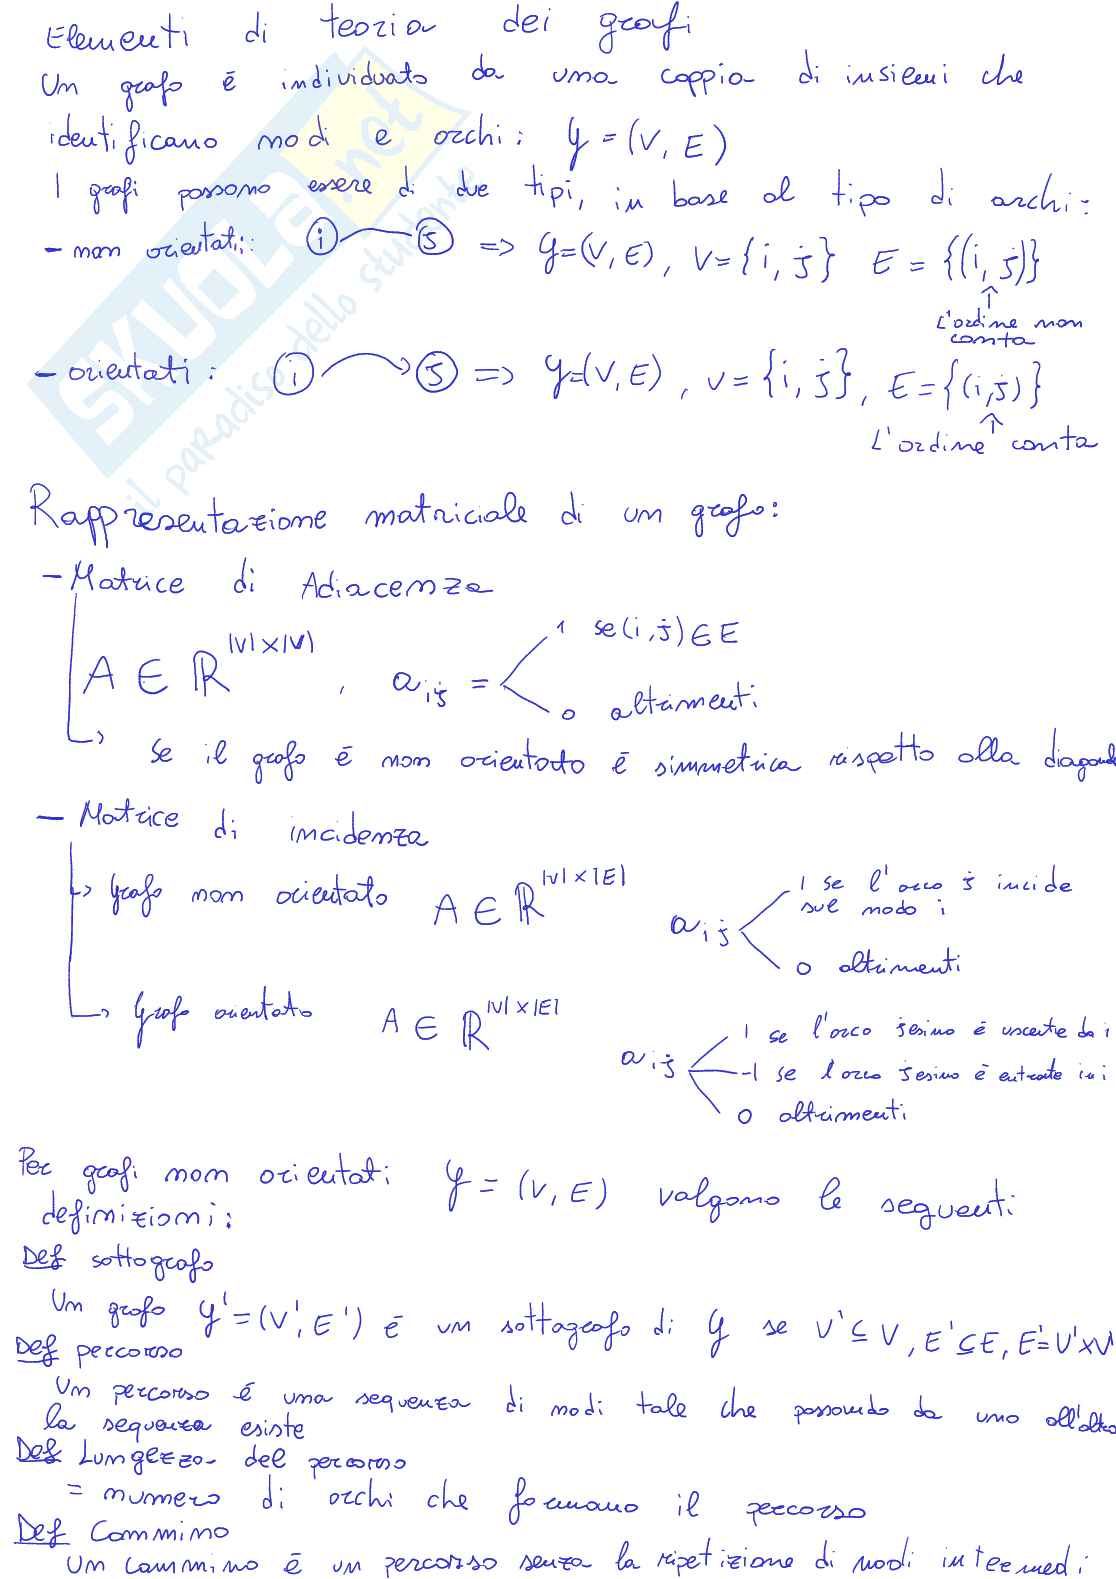 Elementi di teoria dei grafi
Un grafo è individuato da una coppia di insiemi che
identificano nodi e archi: G = (V, E)
I grafi possono essere di due tipi, in base al tipo di archi:
- non orientati: i j => G=(V, E), V={i, j} E = {(i, j)}
↑
L'ordine non
conta
- orientati: i j => G=(V, E), V={i, j}, E={(i,j)}
↑
L'ordine conta
Rappresentazione matriciale di un grafo:
- Matrice di Adiacenza
A ∈ ℝ^|V|×|V|, a_ij = 1 se (i, j) ∈ E
0 altrimenti
se il grafo è non orientato è simmetrica rispetto alla diagonale
- Matrice di incidenza
-> Grafo non orientato A ∈ ℝ^|V|×|E| a_ij 1 se l'arco j incide
sul nodo i
0 altrimenti
-> Grafo orientato A ∈ ℝ^|V|×|E| a_ij 1 se l'arco jesimo è uscente da i
-1 se l'arco jesimo è entrante in i
0 altrimenti
Per grafi non orientati G = (V, E) valgono le seguenti
definizioni:
Def sottografo
Un grafo G'=(V', E') è un sottografo di G se V'⊆V, E'⊆E, E'=V'×V'
Def percorso
Un percorso è una sequenza di nodi tale che passando da uno all'altro
la sequenza esiste
Def Lungezza del percorso
= numero di archi che formano il percorso
Def Cammino
Un cammino è un percorso senza la ripetizione di nodi intermedi
SKUOLA.net
il paradiso dello studente